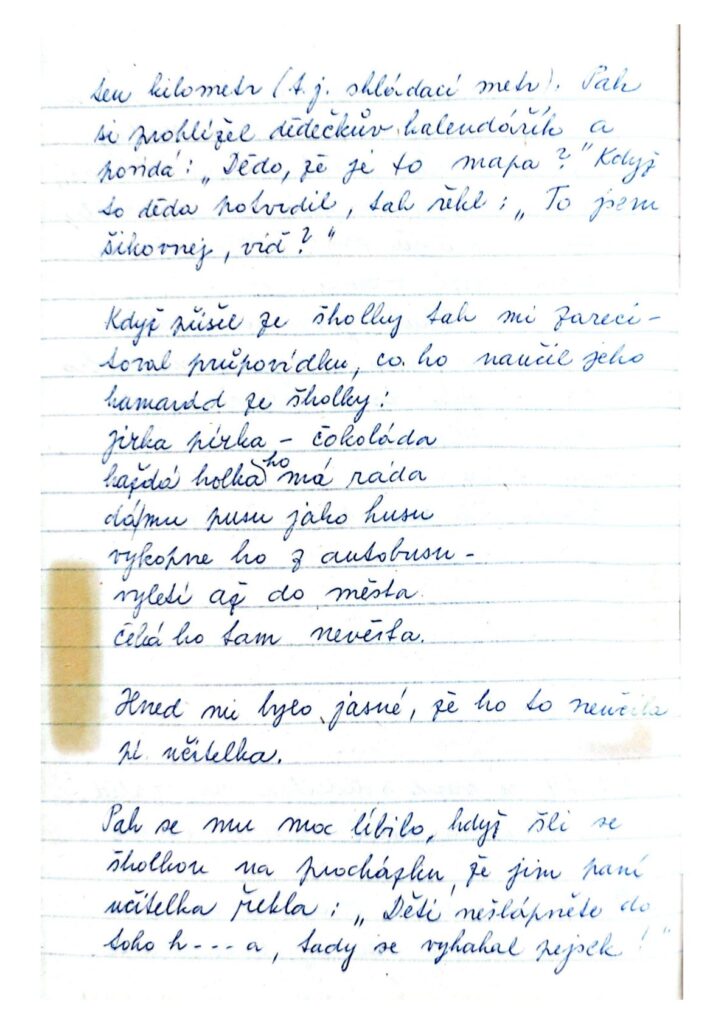 ten kilometr (t.j. skládací metr). Pak
si prohlížel dědečkův kalendářík a
povídá: „Dědo, že je to mapa?" Když
to děda potvrdil, tak řekl: „To jsem
šikovnej, viď?"
Když přišel ze školky tak mi zareci-
toval průpovídku, co ho naučil jeho
kamarád ze školky:
Jirka pírka – čokoláda
každá holka ho má ráda
dá mu pusu jako husu
vykopne ho z autobusu –
vyletí až do města
čeká ho tam nevěsta.
Hned mi bylo jasné, že ho to neučila
pí učitelka.
Pak se mu moc líbilo, když šli se
školkou na procházku, že jim paní
učitelka řekla: „Děti nešlápněte do
toho h---a, tady se vykakal pejsek!"